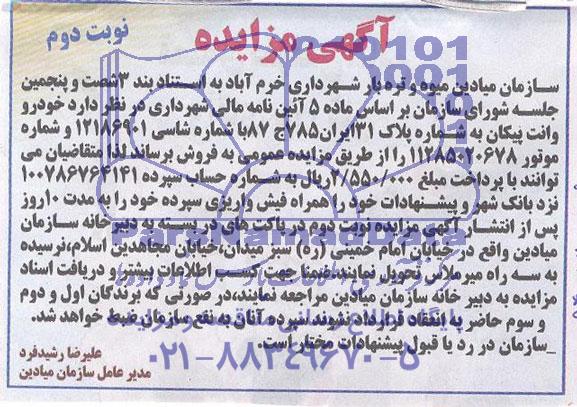 آگهی مزایده
نوبت دوم
سازمان میادین میوه و تره بار شهرداری خرم آباد به استناد بند ۳ شصت و پنجمین
جلسه شورای سازمان بر اساس ماده ۵ آئین نامه مالی شهرداری در نظر دارد خودرو
وانت پیکان به شماره پلاک ۱۳۱ ایران ۷۸۵ ج ۸۷ با شماره شاسی ۱۲۱۸۶۹۰۱ و شماره
موتور ۱۱۲۸۵۰۲۰۶۷۸ را از طریق مزایده عمومی به فروش برساند لذا متقاضیان می
توانند با پرداخت مبلغ ۲/۵۵۰/۰۰۰ ریال به شماره حساب سپرده ۱۰۰۷۸۶۷۶۴۱۴۱
نزد بانک شهر و پیشنهادات خود را همراه فیش واریزی سپرده خود را به مدت ۱۰ روز
پس از انتشار آگهی مزایده نوبت دوم در پاکت های در بسته به دبیرخانه سازمان
میادین واقع در خیابان امام خمینی (ره) سبز میدان، خیابان مجاهدین اسلام، نرسیده
به سه راه میرملاس تحویل نمایند، ضمنا جهت کسب اطلاعات بیشتر و دریافت اسناد
مزایده به دبیر خانه سازمان میادین مراجعه نمایند، در صورتی که برندگان اول و دوم
و سوم حاضر به انعقاد قرارداد نشوند سپرده آنان به نفع سازمان ضبط خواهد شد.
_سازمان در رد یا قبول پیشنهادات مختار است.
علیرضا رشیدفرد
مدیر عامل سازمان میادین
۰۲۱-۸۸۳۴۹۶۷۰-۵